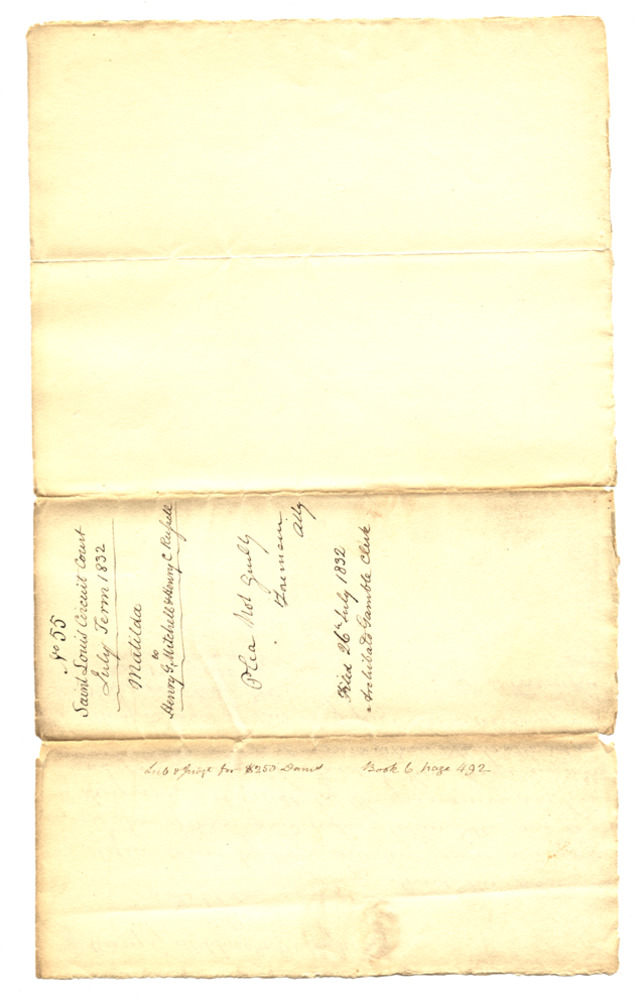 No 55
Saint Louis Circuit Court
July Term 1832
Matilda
to
Henry G. Mitchell & Henry C Russell
Plea Not Guilty
Atty
Filed 26th July 1832
Archibald Gamble Clerk
for $250 Book 6 page 492